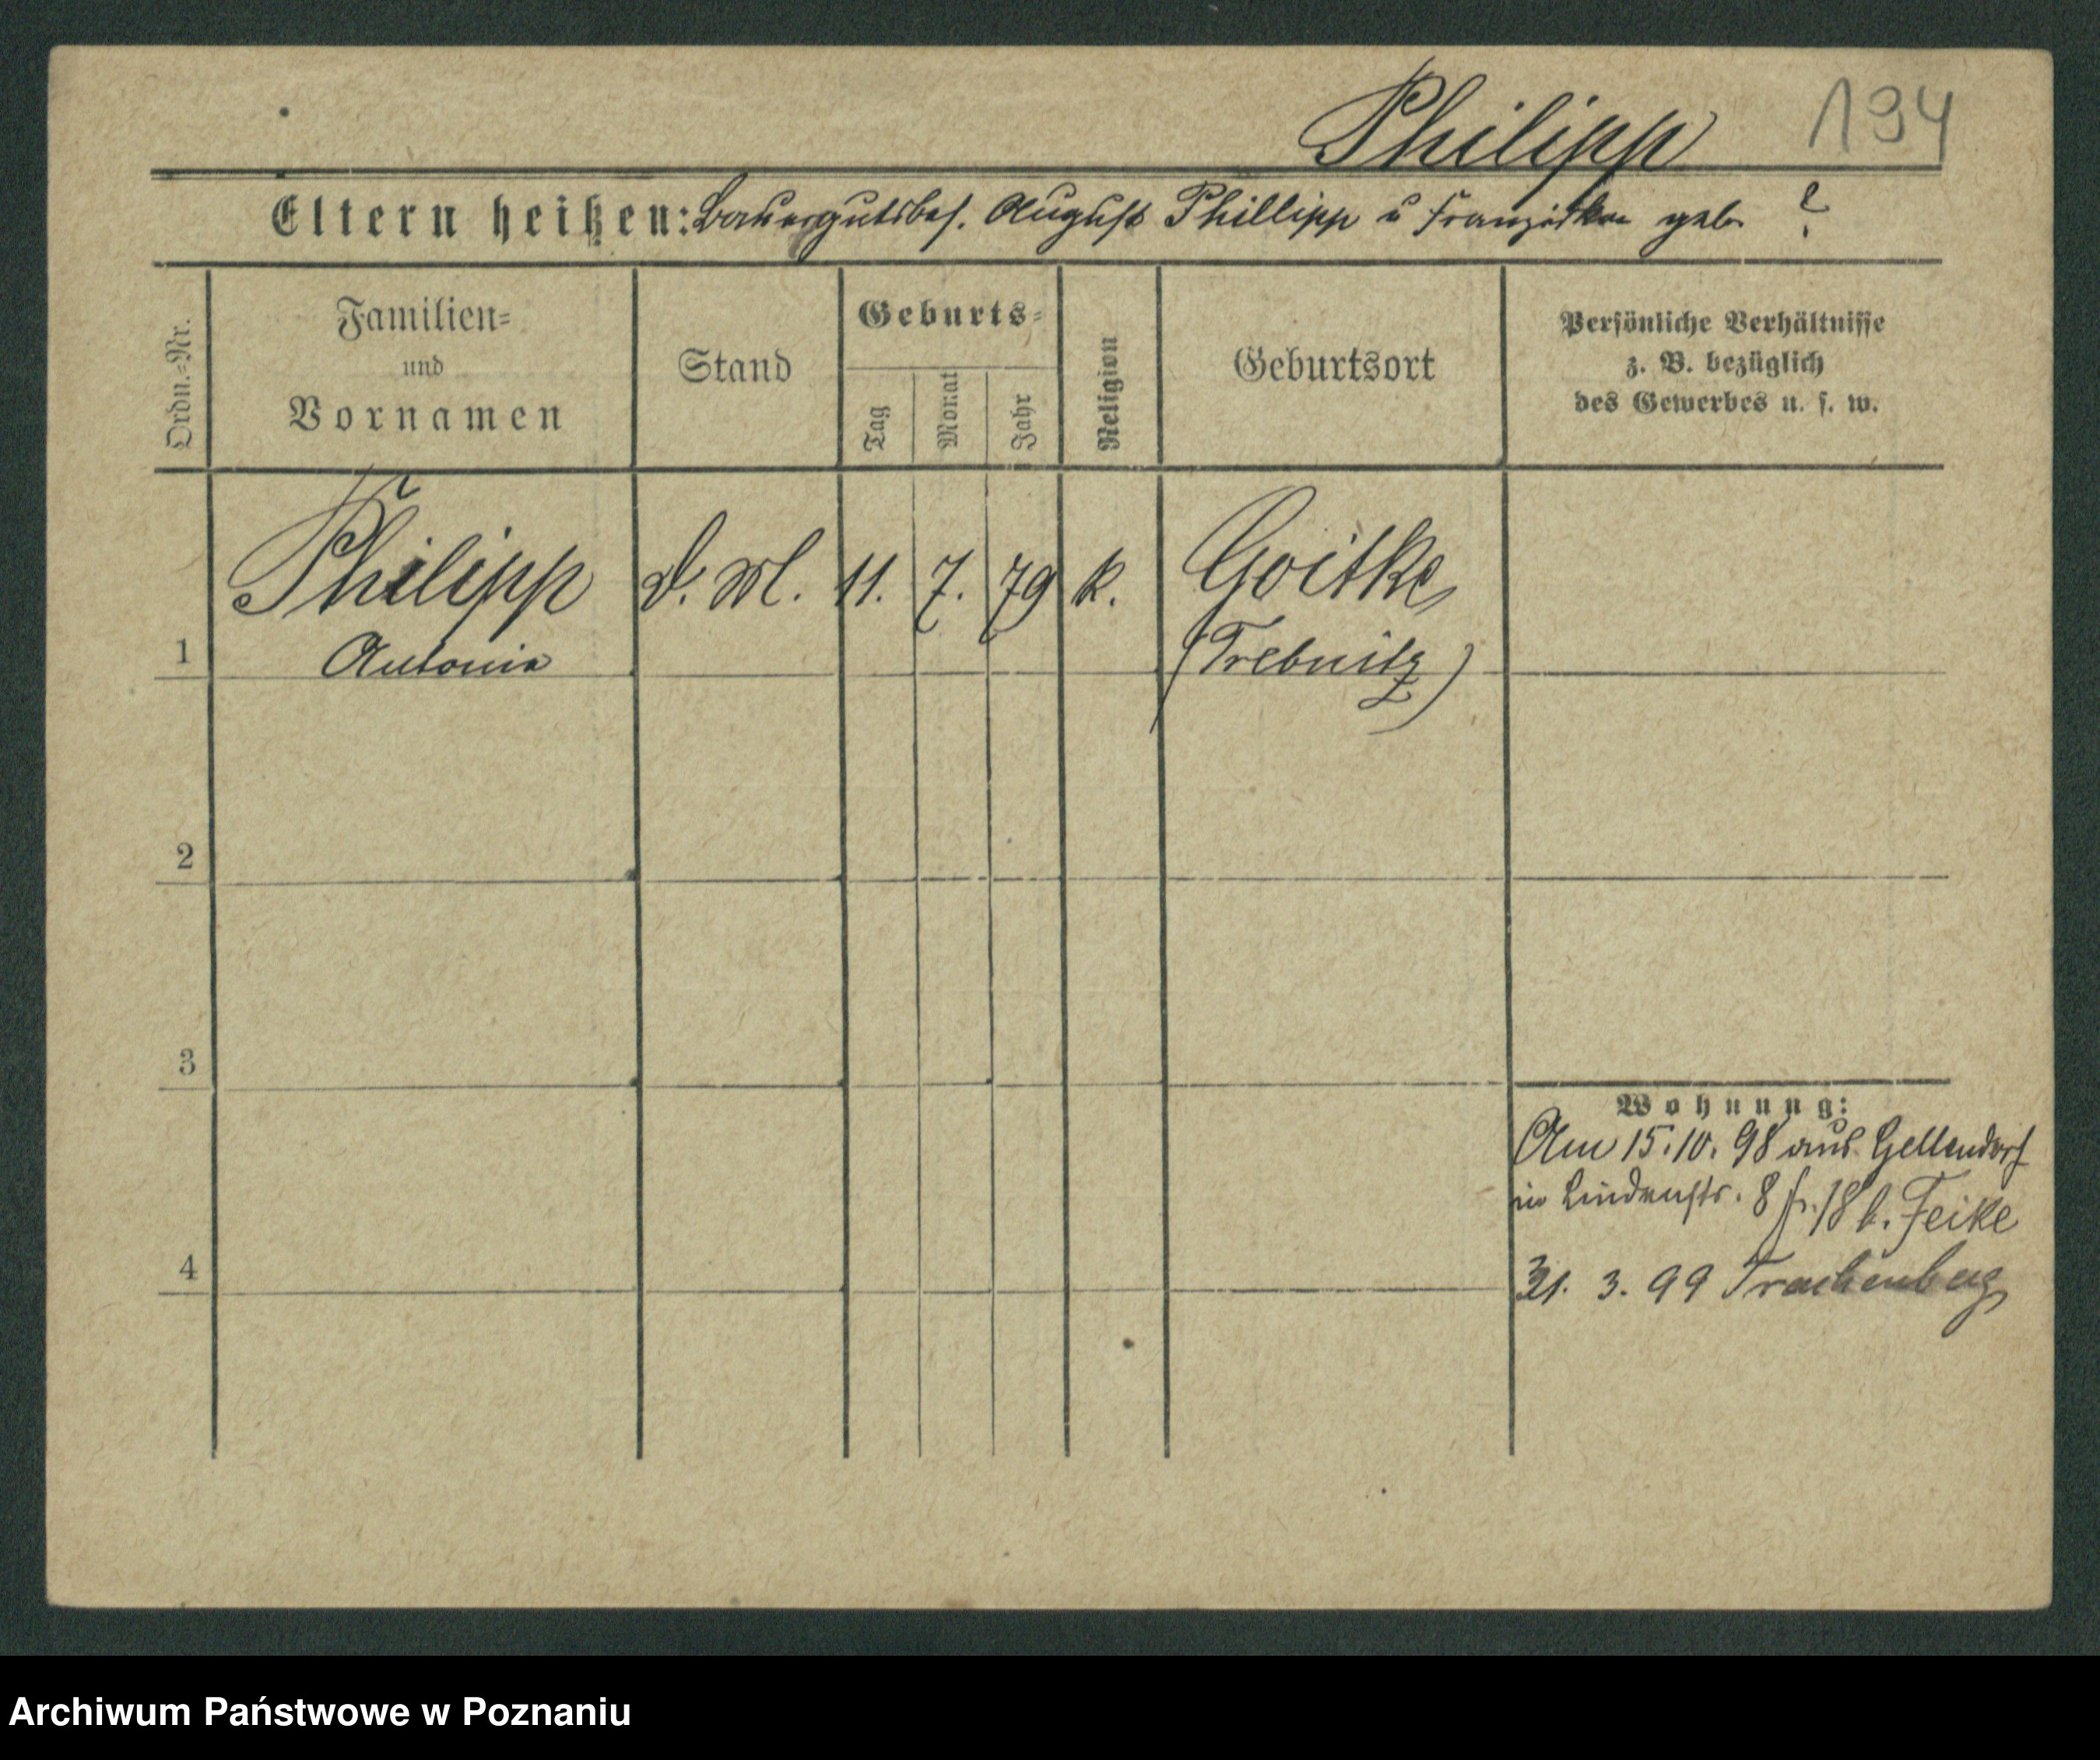 Philipp 194
Eltern heißen: Bauergutsbes. August Phillipp u Franziska geb. ?
Ordn.=Nr.
Familien=
und
Vornamen
Stand
Geburts=
Tag
Monat
Jahr
Religion
Geburtsort
Persönliche Verhältnisse
z. B. bezüglich
des Gewerbes u. s. w.
Philipp d. M. 11. 7. 79 k. Goitke
1 Antonie (Trebnitz)
2
3
Wohnung:
Am 15.10.98 aus Gellendorf
in Lindenstr. 8 fr. 18 b. Feike
4
31. 3. 99 Trachenberg
Archiwum Państwowe w Poznaniu